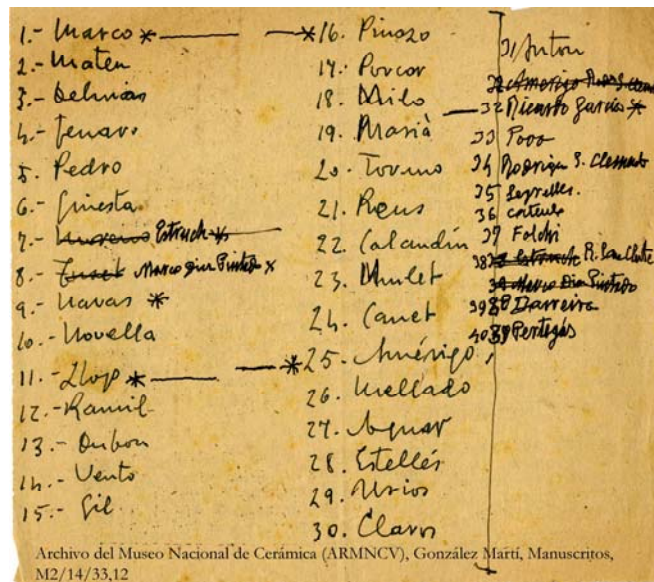 1.- Marco *
2.- Mateu
3.- Belmias
4.- Genaro
5. Pedro
6.- Ginesta
7.- Estruch *
8.- Marco Diaz Pintado x
9.- Navas *
10.- Novella
11.- Llop *
12.- Ramil
13.- Dubon
14.- Vento
15.- Gil
*16. Pinazo
17. Porcar
18. Milo
19. Marià
20. Torino
21. Reus
22. Calandín
23. Mulet
24. Canet
*25. Amérigo
26. Mellado
27. Aguar
28. Estellés
29. Urios
30. Claros
31 Anton
32 Ricardo Garcia *
33 Povo
34 Rodrigu S. Clement
35
36
37 Folchi
38 R.
39 Barreira
40 Pertegás
Archivo del Museo Nacional de Cerámica (ARMNCV), González Martí, Manuscritos,
M2/14/33,12